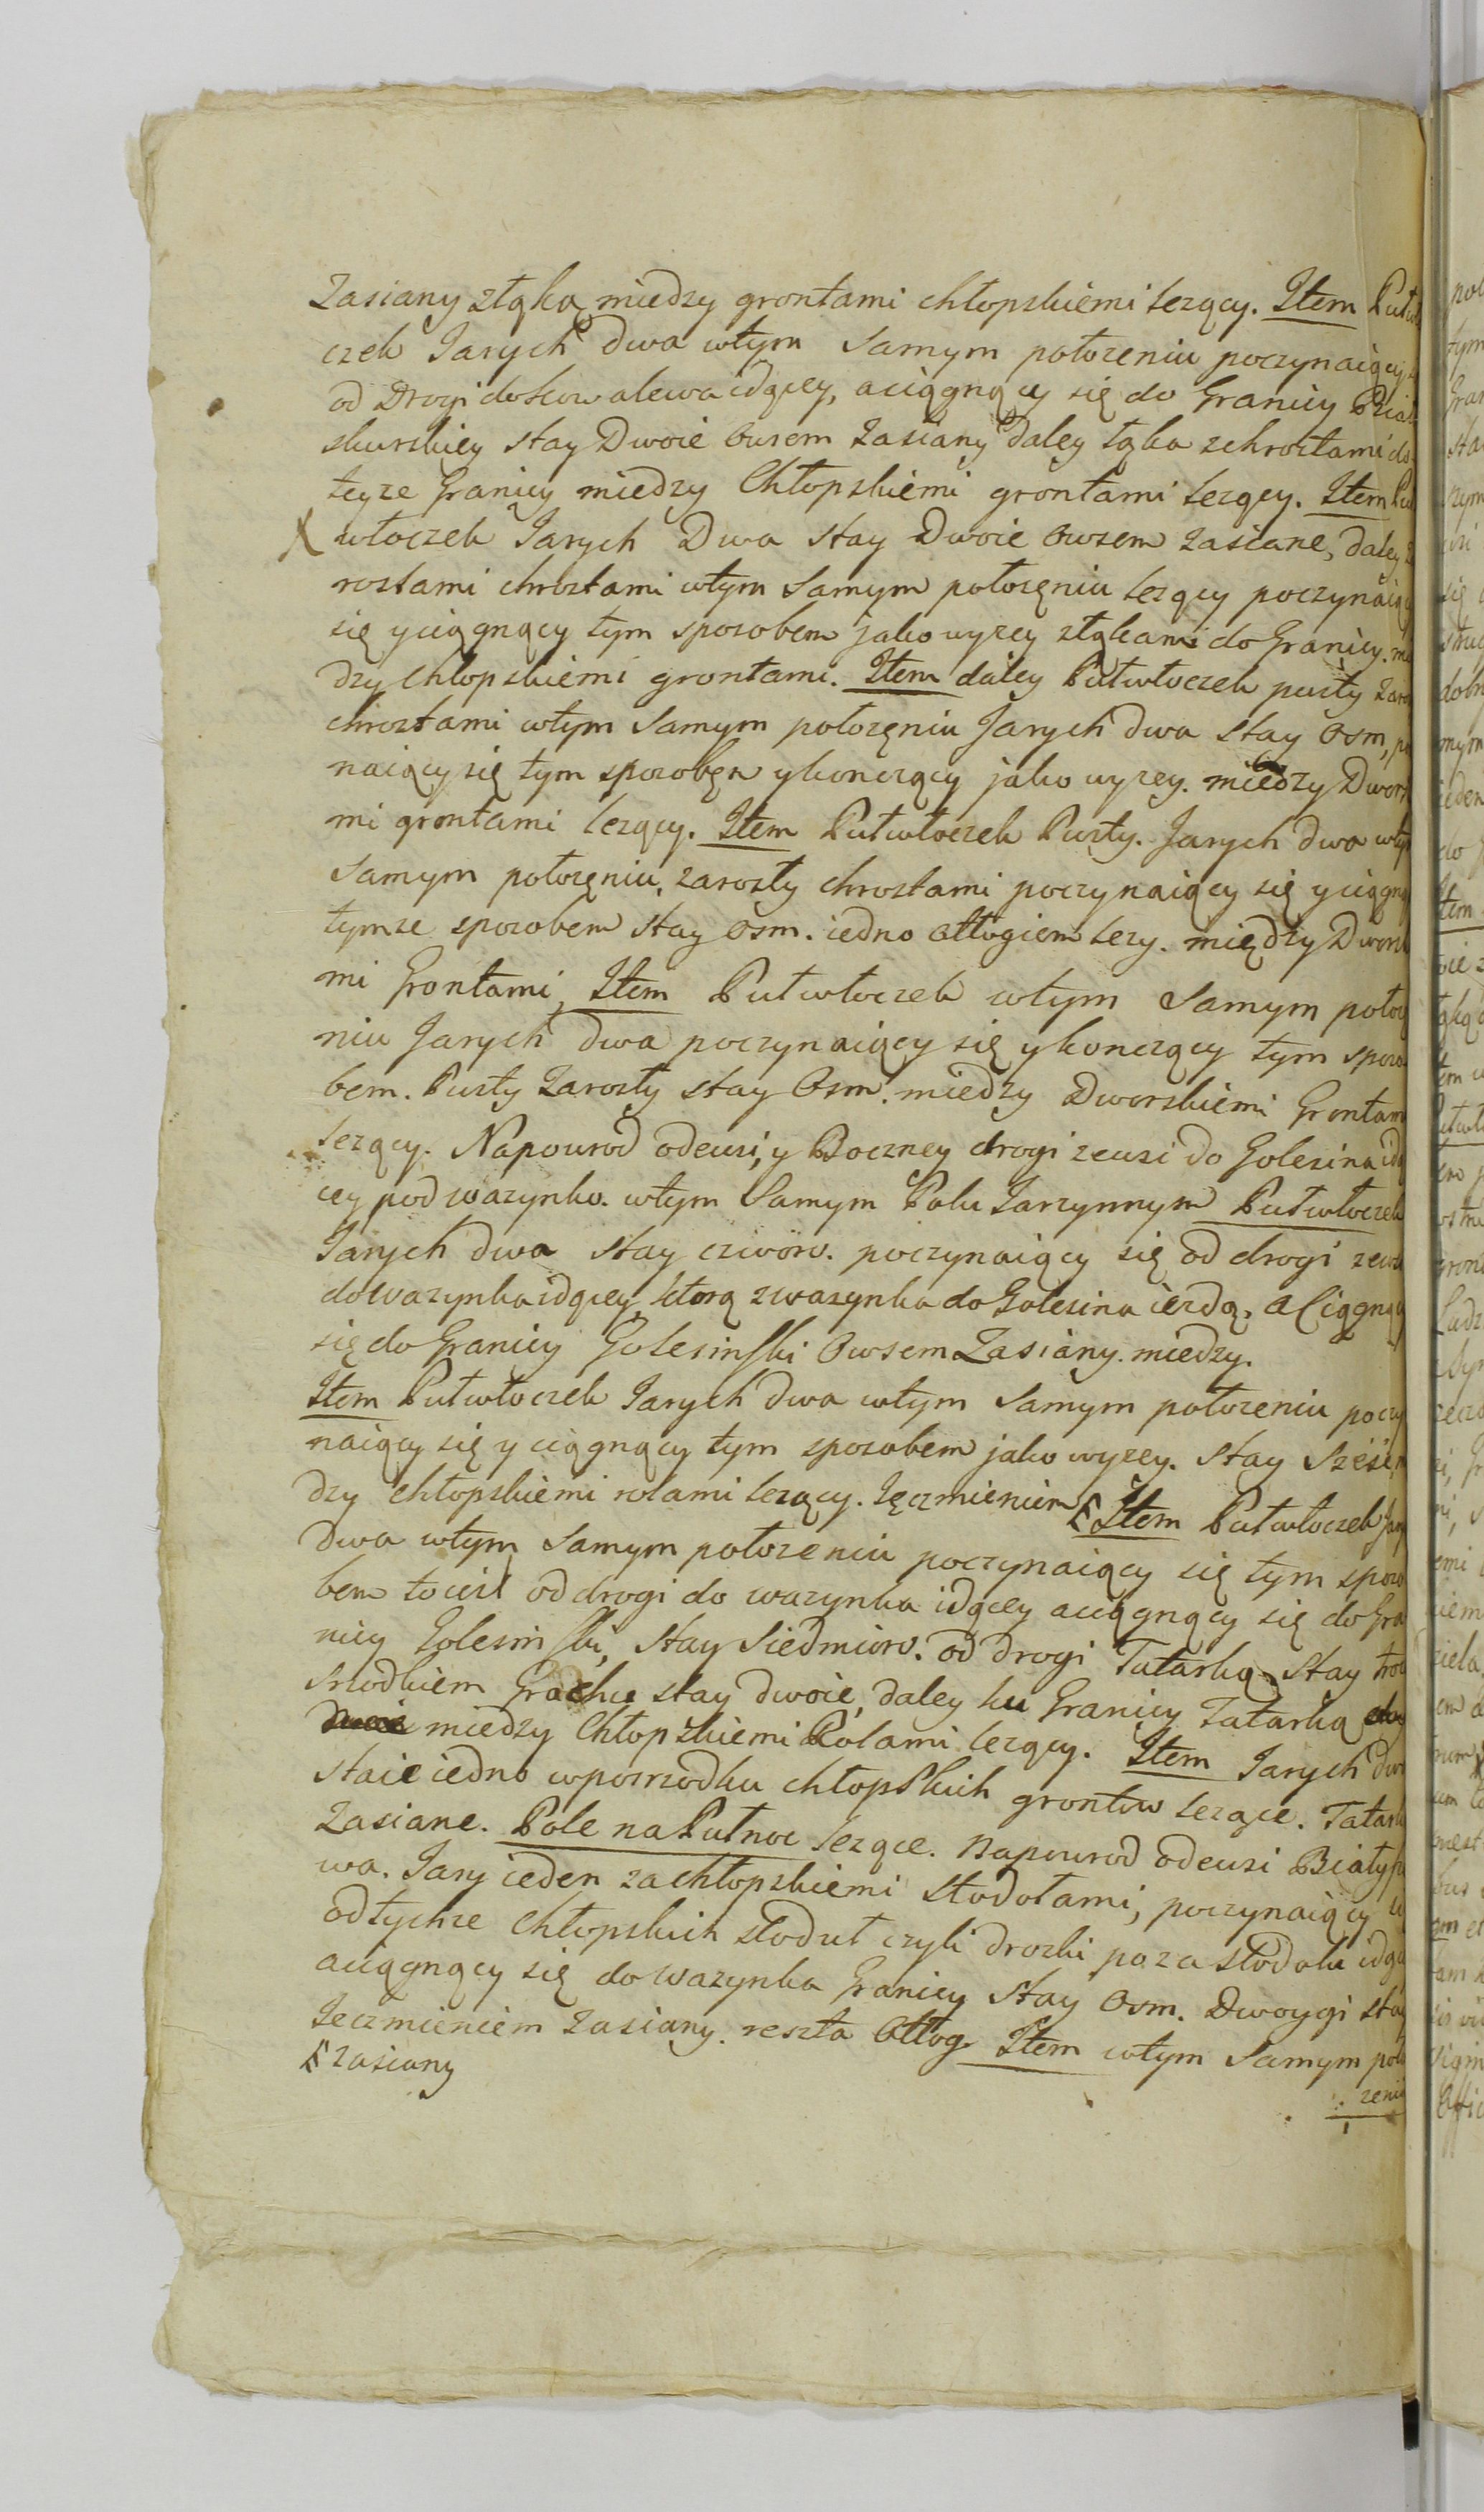 Zasiany złąką między grontami chłopskiemi lezący. Item Putwło
czek Jarych dwa wtym Samym połozeniu poczynaiący
od Drogi do Kowalewa idącey, aciągnący się do Granicy
skurskiey stay Dwoie Owsem Zasiany daley łąka zchrostami do
teyze Granicy miedzy Chłopskiemi grontami lezący. Item Put
X włoczek Jarych Dwa stay Dwoie Owsem zasiane, daley
rostami chrostami wtym Samym położęniu lezący poczynaiący
się yciągnący tym sposobem jako wyzey złąkami do Granicy. mie
dzy Chłopskiemi grontami. Item daley Putwłoczek pusty zaro
chrostami wtym Samym położęniu Jarych dwa stay Osm,
naiący się tym sposobęm ykonczący jako wyzey. miedzy Dwors
mi grontami lezący. Item Putwłoczek Pusty. Jarych dwa wty
Samym położęniu, zarosły chrostami poczynaiący się yciągną
tymze sposobem stay osm. iedno odłogiem lezy. między Dwors
mi Grontami, Item Putwłoczek wtym Samym połoz
niu Jarych dwa poczynaiący się ykonczący tym sposo
bem. Pusty Zarosły stay Osm. miedzy Dworskiemi Grontam
lezący. Napowrod odewsi, y Boczney drogi zewsi do Golesina idą
cy pod wazynko. wtym Samym Polu Jarzynnym Putwłoczek
Jarych dwa stay czworo. poczynaiący się od drogi zews
do Wazynka idącey, ktorą zwazynka do Golesina iezdą. aCiągnący
się do Granicy Golesinski Owsem Zasiany. miedzy.
Item Putwłoczek Jarych dwa wtym Samym położeniu poczy
naiący się y ciągnący tym sposobem jako wyzey. Stay Sześć,
dzy chłopskiemi rolami lezący. Jęczmieniem Ł Item Putwłoczek Jary
Dwa wtym Samym położeniu poczynaiący się tym sposo
bem toiest od drogi do wazynka idącey aciągnący się do Gra
nicy Golesinski, Stay Siedmioro. od drogi Tatarką Stay
Srzodkiem Grochu stay dwoie, daley ku Granicy Tatarką
miedzy Chłopskiemi Rolami lezący. Item Jarych dw
staie iedno wposrzodku chłopskich grontow lezące. Tatark
Zasiane. Pole na Putnoc lezące. Napowrod odewsi
wa. Jary ieden zachłopskiemi stodołami, poczynaiący
odtychze Chłopskich stodut czyli drozki poza stodołu idą
aciągnący się do Wazynka Granicy Stay Osm. Dwoygi stay
Jeczmieniem Zasiany. reszta Odłog Item wtym Samym poło
Ł zasiany
zeniu